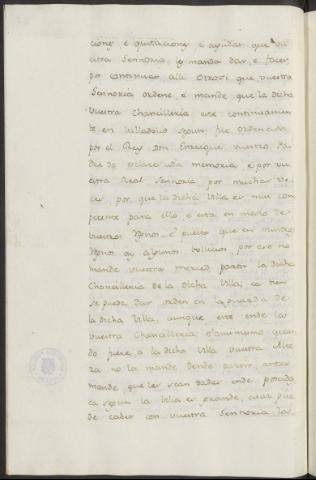 ciones, é quitaciones, é ayudas que vu
estra Sennoria les manda dar, é facer
por continuar alli. Otrosi que vuestra
Sennoria ordene, é mande que la dicha
vuestra Chancilleria esté continuamen
te en Valladolid segun fue ordenado
por el Rey don Enrrique vuestro Pa
dre de esclarecida memoria, é por vu
estra Real Sennoria por muchas ve
ces, por que la dicha Villa es muy con
veniente para ello, é está en medio de
vuestros Reynos. É puesto que en vuestros
Reynos ay algunos bollicios, por eso no
mande vuestra merced partir la dicha
Chancilleria de la dicha Villa, ca bien
se puede dar orden en la guarda de
la dicha Villa, aunque esté ende la
vuestra Chancilleria. É asimismo quan
do fuere a la dicha Villa vuestra Alte
za no la mande dende partir, antes
mande que les sean dadas ende posadas,
ca segun la Villa es grande, asaz pue
de caber con vuestra Sennoria la